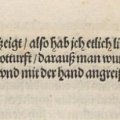 zeigt / also hab ich etlich li
otturfft / darauß man wu
vnd mit der hand angreiff